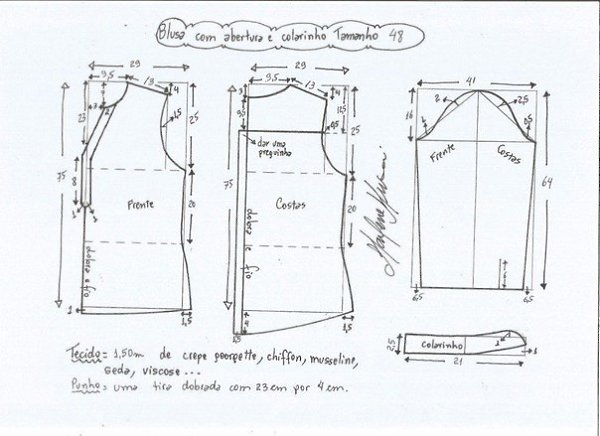 Blusa com abertura e colarinho Tamanho 48
29
9,5
13
4
23
3
2
1,5
25
75
8
Frente
20
dobra e fio
1
1,5
29
9,5
13
3
4
9,5
12,5
0,5
25
dar uma
preguinha
75
Costas
20
dobra e fio
1,5
41
16
2
2,5
1
0,5
Frente
Costas
64
6,5
6,5
2,5
colarinho
1
1
21
Tecido = 1,50m de crepe georgette, chiffon, musseline,
seda, viscose...
Punho = uma tira dobrada com 23 cm por 4 cm.